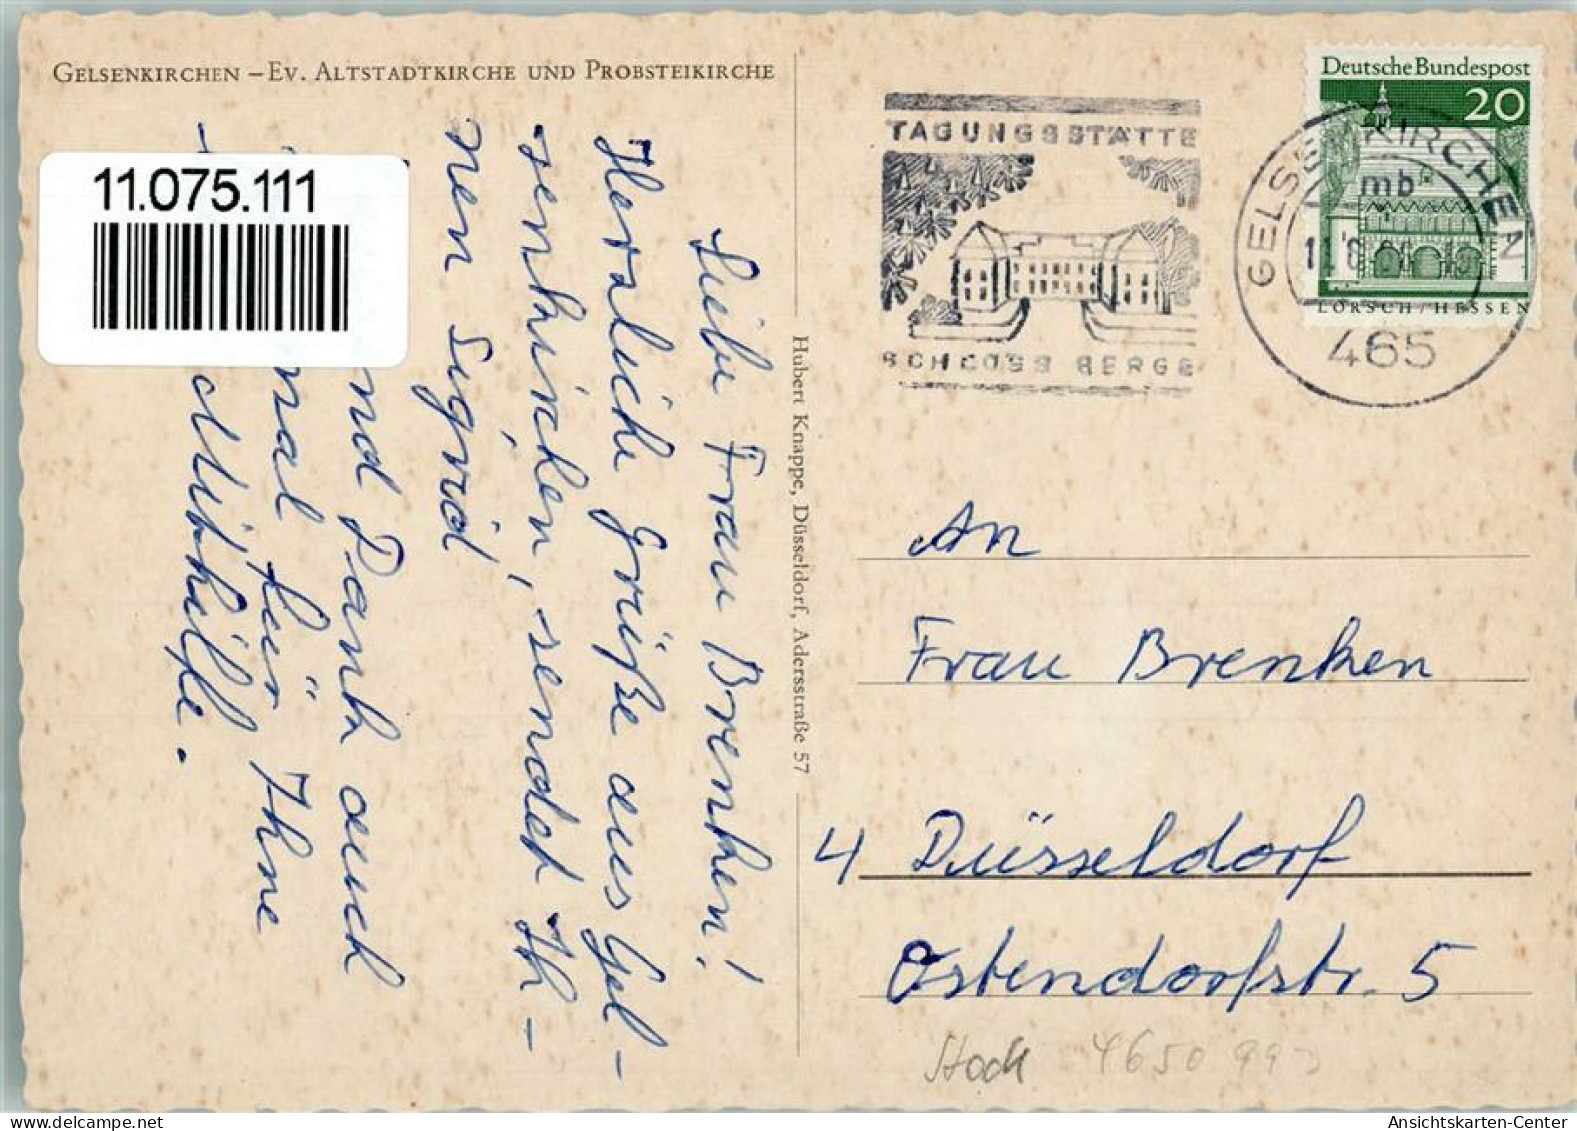 GELSENKIRCHEN – EV. ALTSTADTKIRCHE UND PROBSTEIKIRCHE
11.075.111
Liebe Frau Brenken!
Herzliche Grüße aus Gel-
senkirchen, sendet Ih-
nen Sigrid
nd Dank auch
mal für Ihne
Mithilfe.
Hubert Knappe, Düsseldorf, Adersstraße 57
TAGUNGSSTÄTTE
SCHLOSS BERGE
Deutsche Bundespost
20
LORSCH/HESSEN
GELSENKIRCHEN
mb
465
An
Frau Brenken
4 Düsseldorf
Ostendorfstr. 5
4650
Ansichtskarten-Center